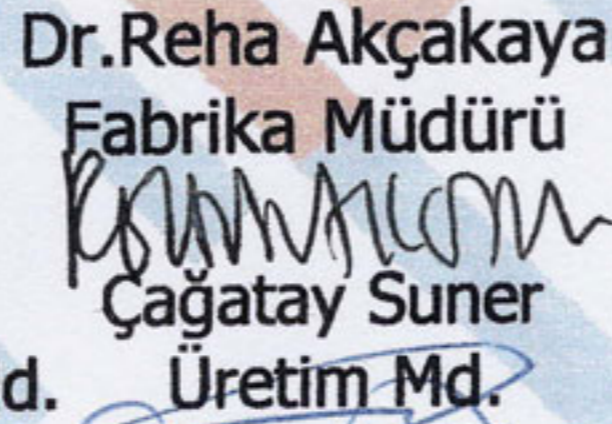 Dr.Reha Akçakaya
Fabrika Müdürü
Çağatay Suner
d. Üretim Md.